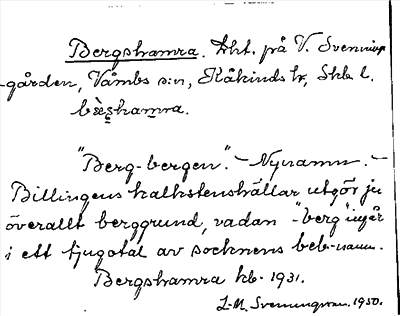 Bergshamra. Aht. på V. Svennings
-gården, Våmbs s:n, Kåkinds hd, Skb. l.
bæ̀ʂhamra.
"Berg-bergen". - Nynamn. -
Billingens kalkstenshällar utgör ju
överallt berggrund, vadan "-berg" ingår
i ett tjugotal av socknens beb-namn.
Bergshamra kb. 1931.
I.-M. Svenningson. 1950.